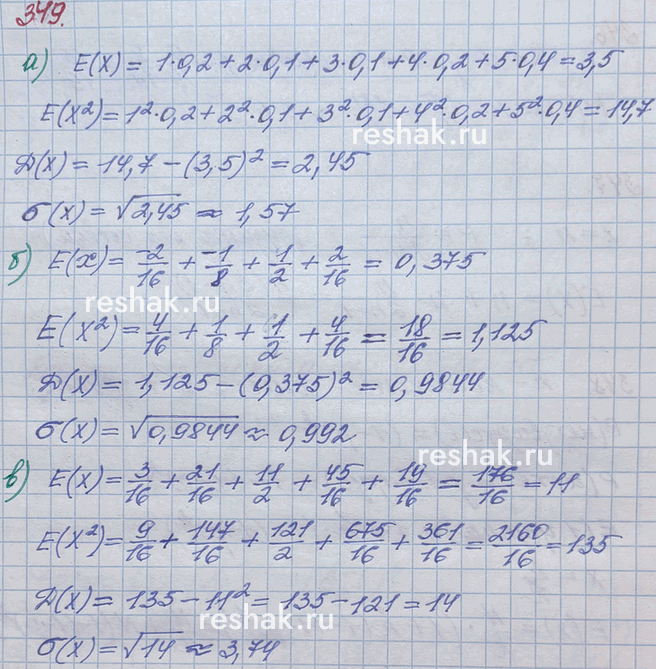 349.
а) E(X) = 1·0,2 + 2·0,1 + 3·0,1 + 4·0,2 + 5·0,4 = 3,5
E(X²) = 1²·0,2 + 2²·0,1 + 3²·0,1 + 4²·0,2 + 5²·0,4 = 14,7
reshak.ru
Д(X) = 14,7 – (3,5)² = 2,45
σ(X) = √2,45 ≈ 1,57
б) E(X) = -2/16 + -1/8 + 1/2 + 2/16 = 0,375
reshak.ru
E(X²) = 4/16 + 1/8 + 1/2 + 4/16 = 18/16 = 1,125
Д(X) = 1,125 – (0,375)² = 0,9844
σ(X) = √0,9844 ≈ 0,992
reshak.ru
в) E(X) = 3/16 + 21/16 + 11/2 + 45/16 + 19/16 = 176/16 = 11
E(X²) = 9/16 + 147/16 + 121/2 + 675/16 + 361/16 = 2160/16 = 135
Д(X) = 135 – 11² = 135 – 121 = 14
reshak.ru
σ(X) = √14 ≈ 3,74